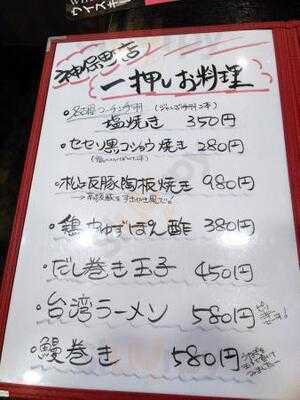 神保町店
一押しお料理
・名古屋コーチン手羽
塩焼き 350円
・セセリ黒コショウ焼き 280円
・松坂豚陶板焼き 980円
・鶏皮ゆずぽん酢 380円
・だし巻き玉子 450円
・台湾ラーメン 580円
・鰻巻き 580円